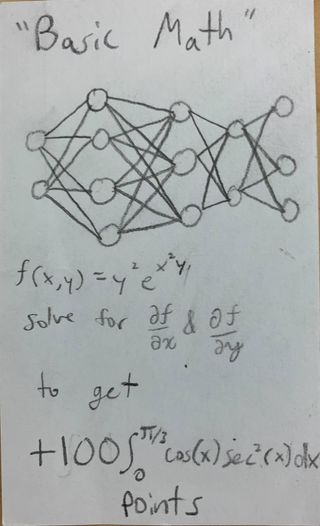 "Basic Math"
f(x,y) = y² e^(x²y)
solve for ∂f/∂x & ∂f/∂y
to get
+100∫₀^(π/3) cos(x) sec²(x) dx
points